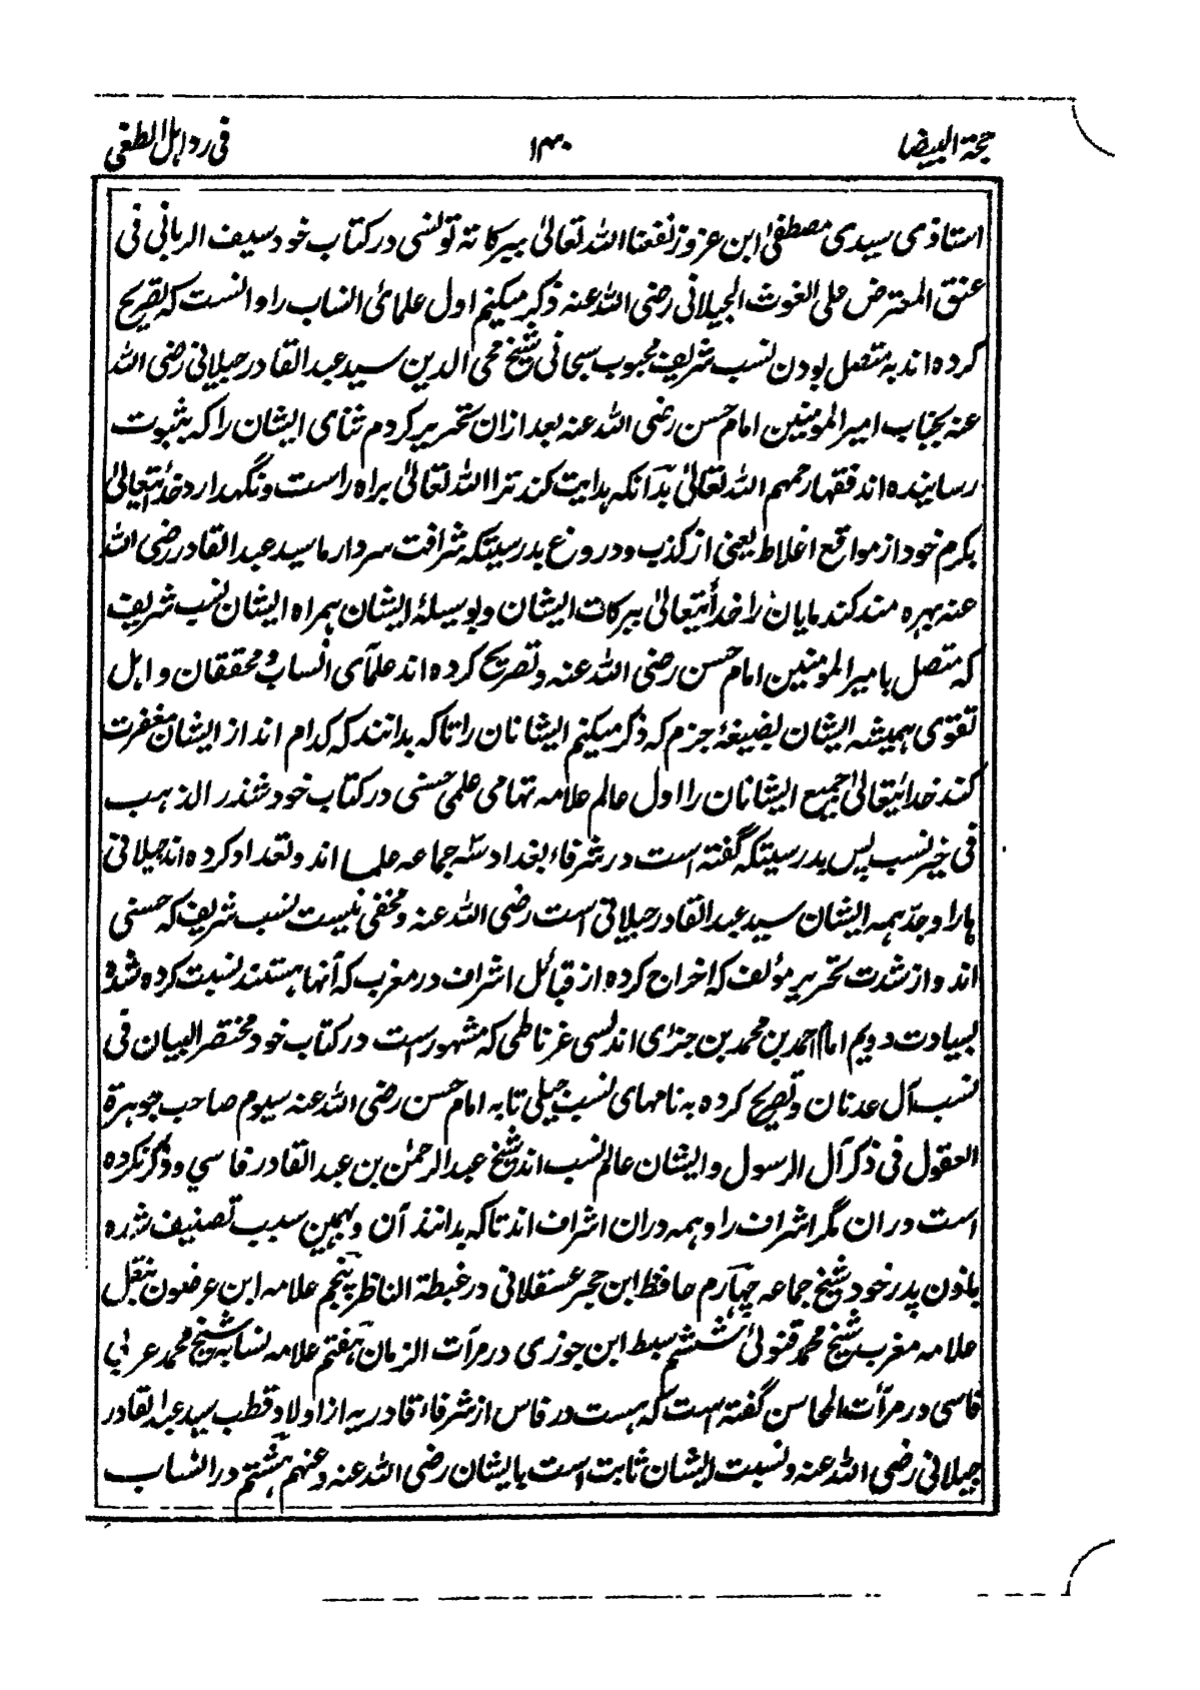 حجة البیضا ۱۳۰ فی رد اہل الطغی
استاذی سیدی مصطفیٰ ابن عزوز نفعنا اللہ تعالیٰ ببرکاتہ تونسی در کتاب خود سیف الربانی فی
عنق المعترض علی الغوث الجیلانی رضی اللہ عنہ ذکر میکنم اول علمائ انساب را دانست کہ تصریح
کردہ اند بہ متصل بودن نسب شریف محبوب سبحانی شیخ محی الدین سید عبد القادر جیلانی رضی اللہ
عنہ بجناب امیر المومنین امام حسن رضی اللہ عنہ بعد ازان تحریر کردم ثنای ایشان را کہ بثبوت
رسانیدہ اند فقہا رحمہم اللہ تعالیٰ بدآنکہ ہدایت کند ترا اللہ تعالیٰ براہ راست و نگہدارد خدایتعالیٰ
بکرم خود از مواقع اغلاط یعنی از کذب و دروغ بدرستیکہ شرافت سردار ما سید عبد القادر رضی اللہ
عنہ بہرہ مند کند مایان را خدایتعالیٰ ببرکات ایشان و بوسیلۂ ایشان ہمراہ ایشان نسب شریف
کہ متصل بامیر المومنین امام حسن رضی اللہ عنہ و تصریح کردہ اند علمآی انساب و محققان و اہل
تقوی ہمیشہ ایشان بصیغۂ جزم کہ ذکر میکنم ایشانان را تاکہ بدانند کہ کدام اند از ایشان مغفرت
کند خدایتعالیٰ جمیع ایشانان را اول عالم علامہ تہامی علمی حسنی در کتاب خود شذر الذہب
فی خیر نسب پس بدرستیکہ گفتہ است در شرفاء بغداد سہ جماعہ علما اند و تعداد کردہ اند جیلانی
ہارا و جد ہمہ ایشان سید عبد القادر جیلانی است رضی اللہ عنہ و مخفی نیست نسب شریف کہ حسنی
اند و از شدت تحریر مؤلف کہ اخراج کردہ از قبائل اشراف در مغرب کہ آنہا ہستند نسبت کردہ شدہ
بسیادت دویم امام احمد بن محمد بن جزی اندلسی غرناطی کہ مشہور است در کتاب خود مختصر البیان فی
نسب آل عدنان و تصریح کردہ بہ نامہای نسب جیلی تا بہ امام حسن رضی اللہ عنہ سیوم صاحب جوہرة
العقول فی ذکر آل الرسول و ایشان عالم نسب اند شیخ عبد الرحمٰن بن عبد القادر فاسی و ذکر نکردہ
است در ان مگر اشراف را و ہمہ دران اشراف اند تاکہ بدانند آن و بہمین سبب تصنیف شدہ
باذن پدر خود شیخ جماعہ چہآرم حافظ ابن حجر عسقلانی در غبطة الناظر پنجم علامہ ابن عرضون بنقل
علامہ مغرب شیخ محمد قنوئی ششم سبط ابن جوزی در مرآت الزمان ہفتم علامہ نسابہ شیخ محمد عربی
فاسی در مرآت المحاسن گفتہ است کہ ہست در فاس از شرفاء قادریہ از اولاد قطب سید عبد القادر
جیلانی رضی اللہ عنہ و نسبت ایشان ثابت است بایشان رضی اللہ عنہ و عنہم ہشتم در انساب